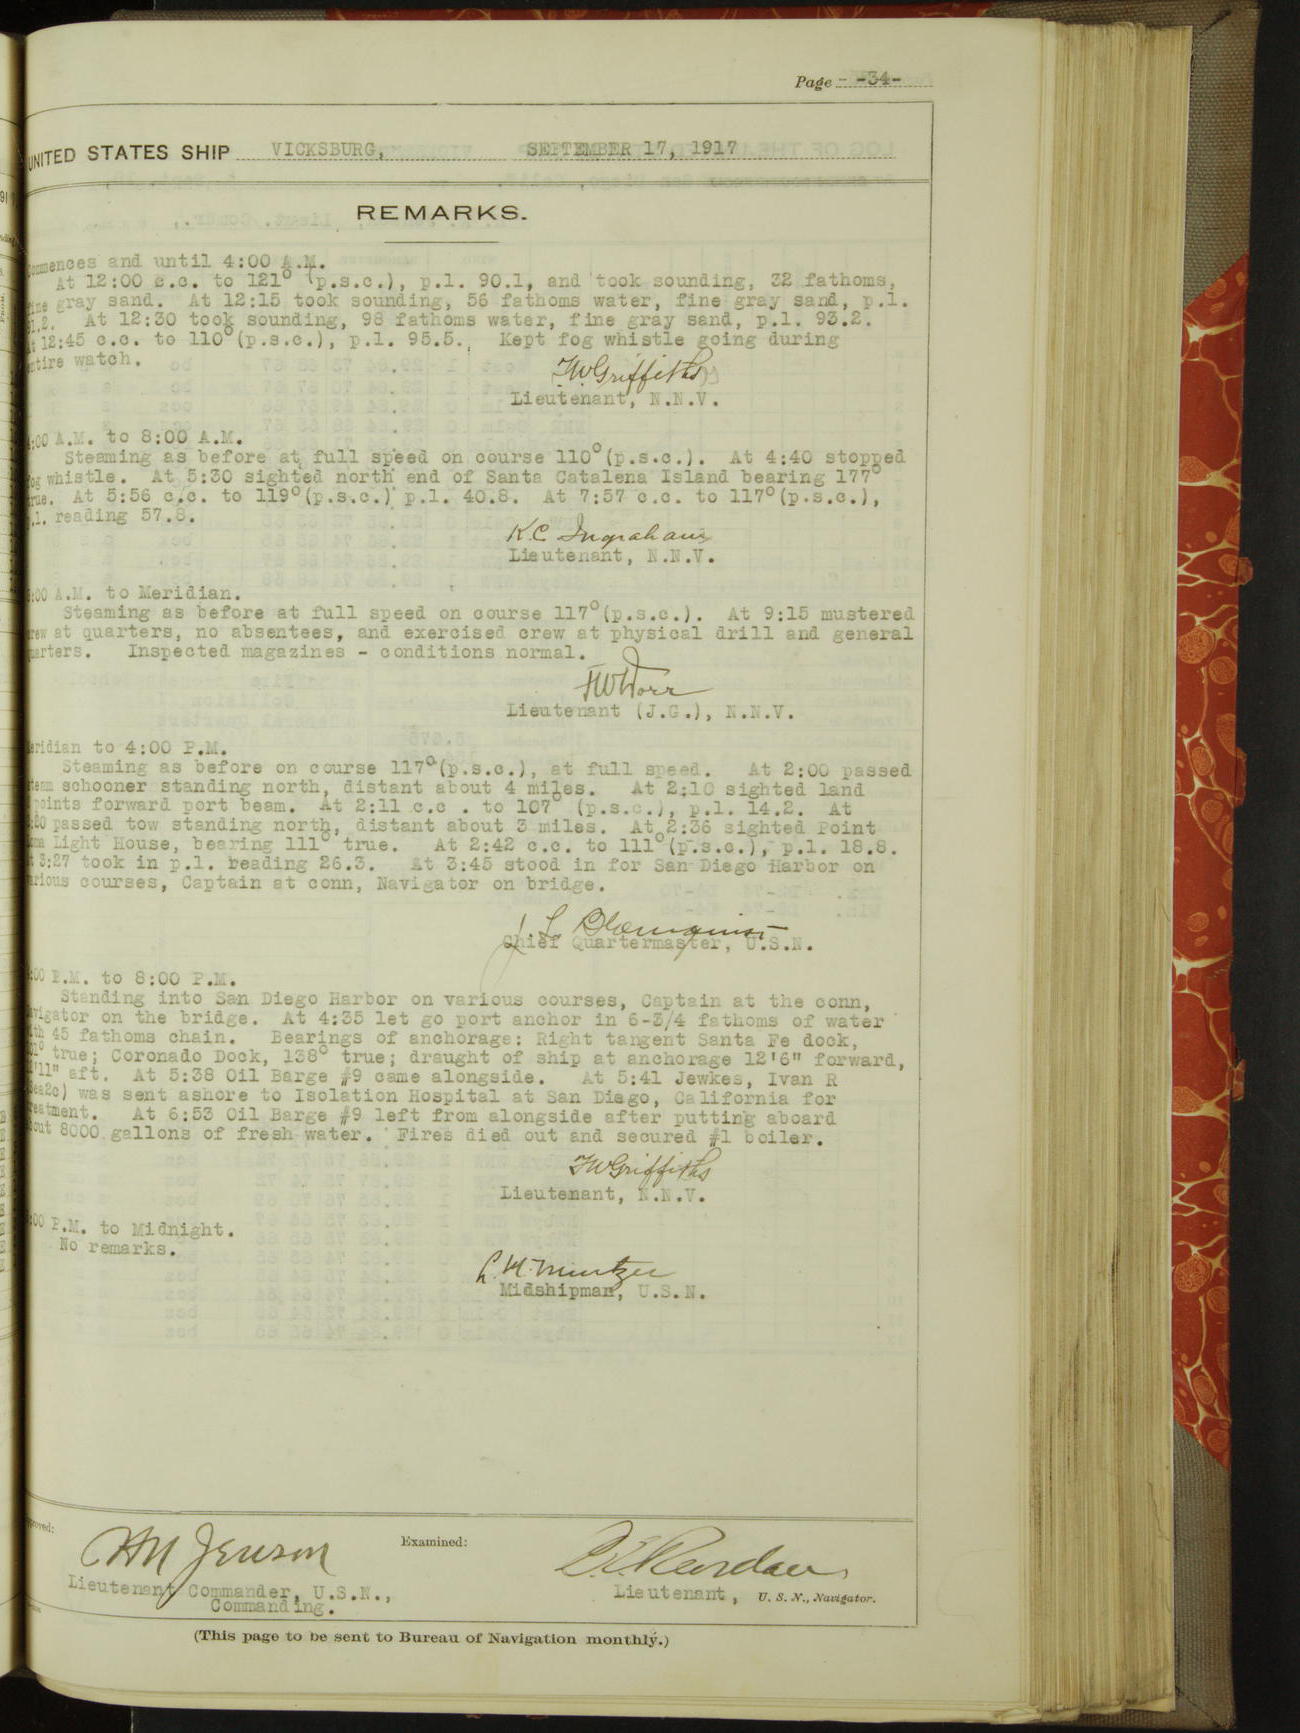 Page -34-
UNITED STATES SHIP VICKSBURG, SEPTEMBER 17, 1917
REMARKS.
Commences and until 4:00 A.M.
At 12:00 c.c. to 121° (p.s.c.), p.l. 90.1, and took sounding, 32 fathoms,
fine gray sand. At 12:15 took sounding, 56 fathoms water, fine gray sand, p.l.
91.2. At 12:30 took sounding, 98 fathoms water, fine gray sand, p.l. 93.2.
At 12:45 c.c. to 110°(p.s.c.), p.l. 95.5. Kept fog whistle going during
entire watch.
F.W.Griffiths
Lieutenant, N.N.V.
4:00 A.M. to 8:00 A.M.
Steaming as before at full speed on course 110°(p.s.c.). At 4:40 stopped
fog whistle. At 5:30 sighted north end of Santa Catalena Island bearing 177°
true. At 5:56 c.c. to 119°(p.s.c.) p.l. 40.8. At 7:57 c.c. to 117°(p.s.c.),
p.l. reading 57.8.
K.C. Ingraham
Lieutenant, N.N.V.
8:00 A.M. to Meridian.
Steaming as before at full speed on course 117°(p.s.c.). At 9:15 mustered
crew at quarters, no absentees, and exercised crew at physical drill and general
quarters. Inspected magazines - conditions normal.
Lieutenant (J.G.), N.N.V.
Meridian to 4:00 P.M.
Steaming as before on course 117°(p.s.c.), at full speed. At 2:00 passed
steam schooner standing north, distant about 4 miles. At 2:10 sighted land
points forward port beam. At 2:11 c.c . to 107° (p.s.c.), p.l. 14.2. At
passed tow standing north, distant about 3 miles. At 2:36 sighted Point
Loma Light House, bearing 111° true. At 2:42 c.c. to 111°(p.s.c.), p.l. 18.8.
At 3:27 took in p.l. reading 26.3. At 3:45 stood in for San Diego Harbor on
various courses, Captain at conn, Navigator on bridge.
J. L. Blomquist
Chief Quartermaster, U.S.N.
4:00 P.M. to 8:00 P.M.
Standing into San Diego Harbor on various courses, Captain at the conn,
Navigator on the bridge. At 4:35 let go port anchor in 6-3/4 fathoms of water
with 45 fathoms chain. Bearings of anchorage: Right tangent Santa Fe dock,
true; Coronado Dock, 138° true; draught of ship at anchorage 12'6" forward,
aft. At 5:38 Oil Barge #9 came alongside. At 5:41 Jewkes, Ivan R
(Sea2c) was sent ashore to Isolation Hospital at San Diego, California for
treatment. At 6:53 Oil Barge #9 left from alongside after putting aboard
about 8000 gallons of fresh water. Fires died out and secured #1 boiler.
F.W.Griffiths
Lieutenant, N.N.V.
8:00 P.M. to Midnight.
No remarks.
Midshipman, U.S.N.
Approved:
H M Jenson
Lieutenant Commander, U.S.N.,
Commanding.
Examined:
Lieutenant, U. S. N., Navigator.
(This page to be sent to Bureau of Navigation monthly.)